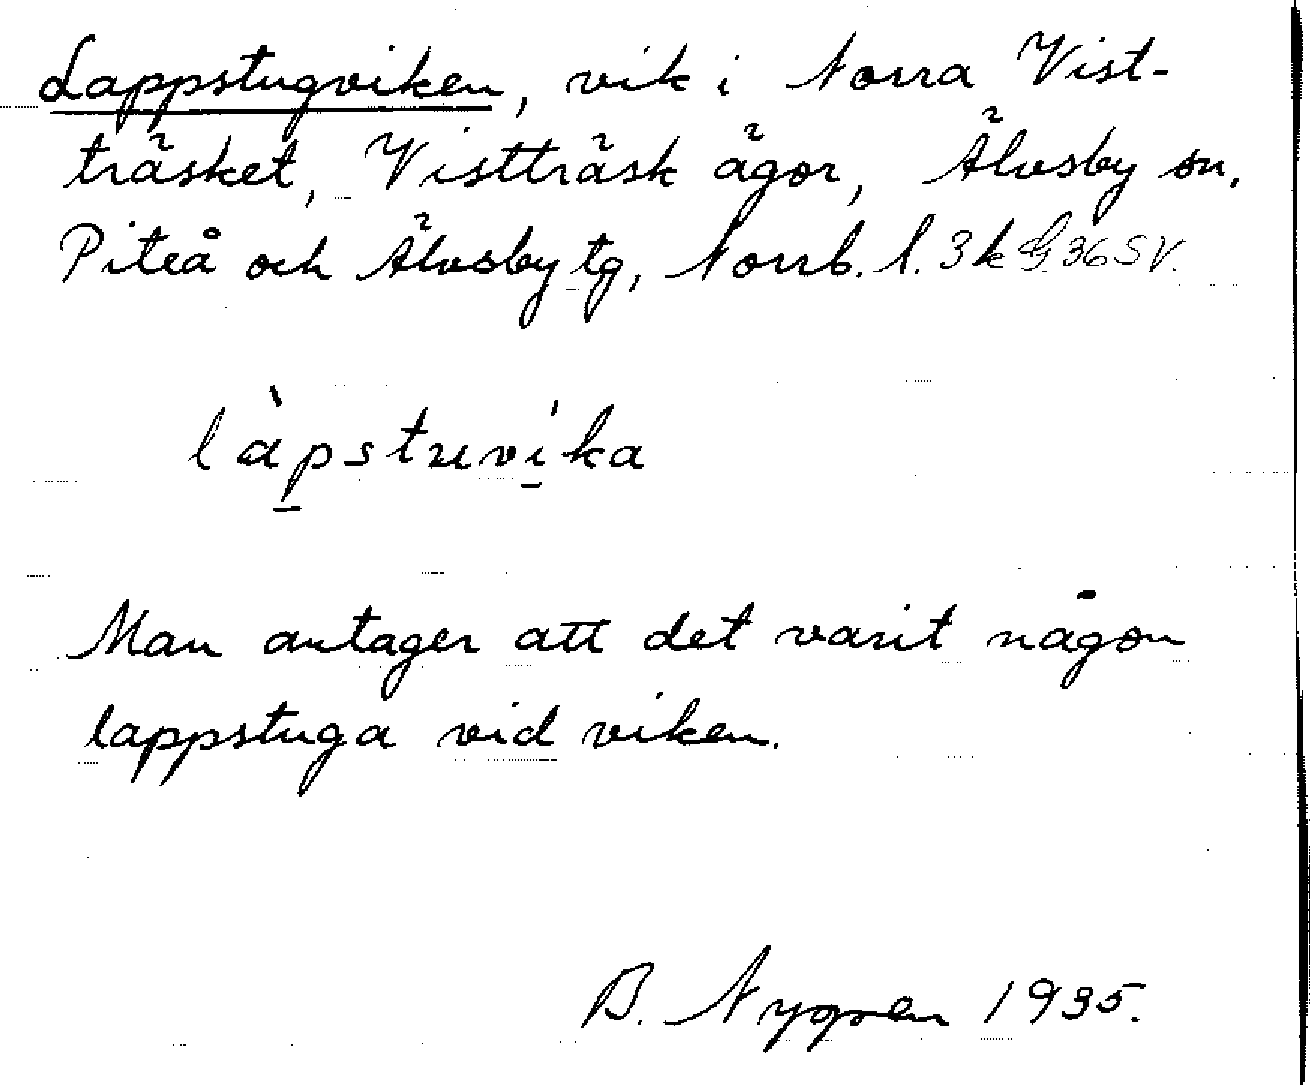 Lappstugviken, vik i Norra Vist-
träsket, Vistträsk ägor, Älvsby sn.
Piteå och Älvsby tg, Norrb. l. 3k G. 36 SV.
làpstuvíka
Man antager att det varit någon
lappstuga vid viken.
B. Nygren 1935.